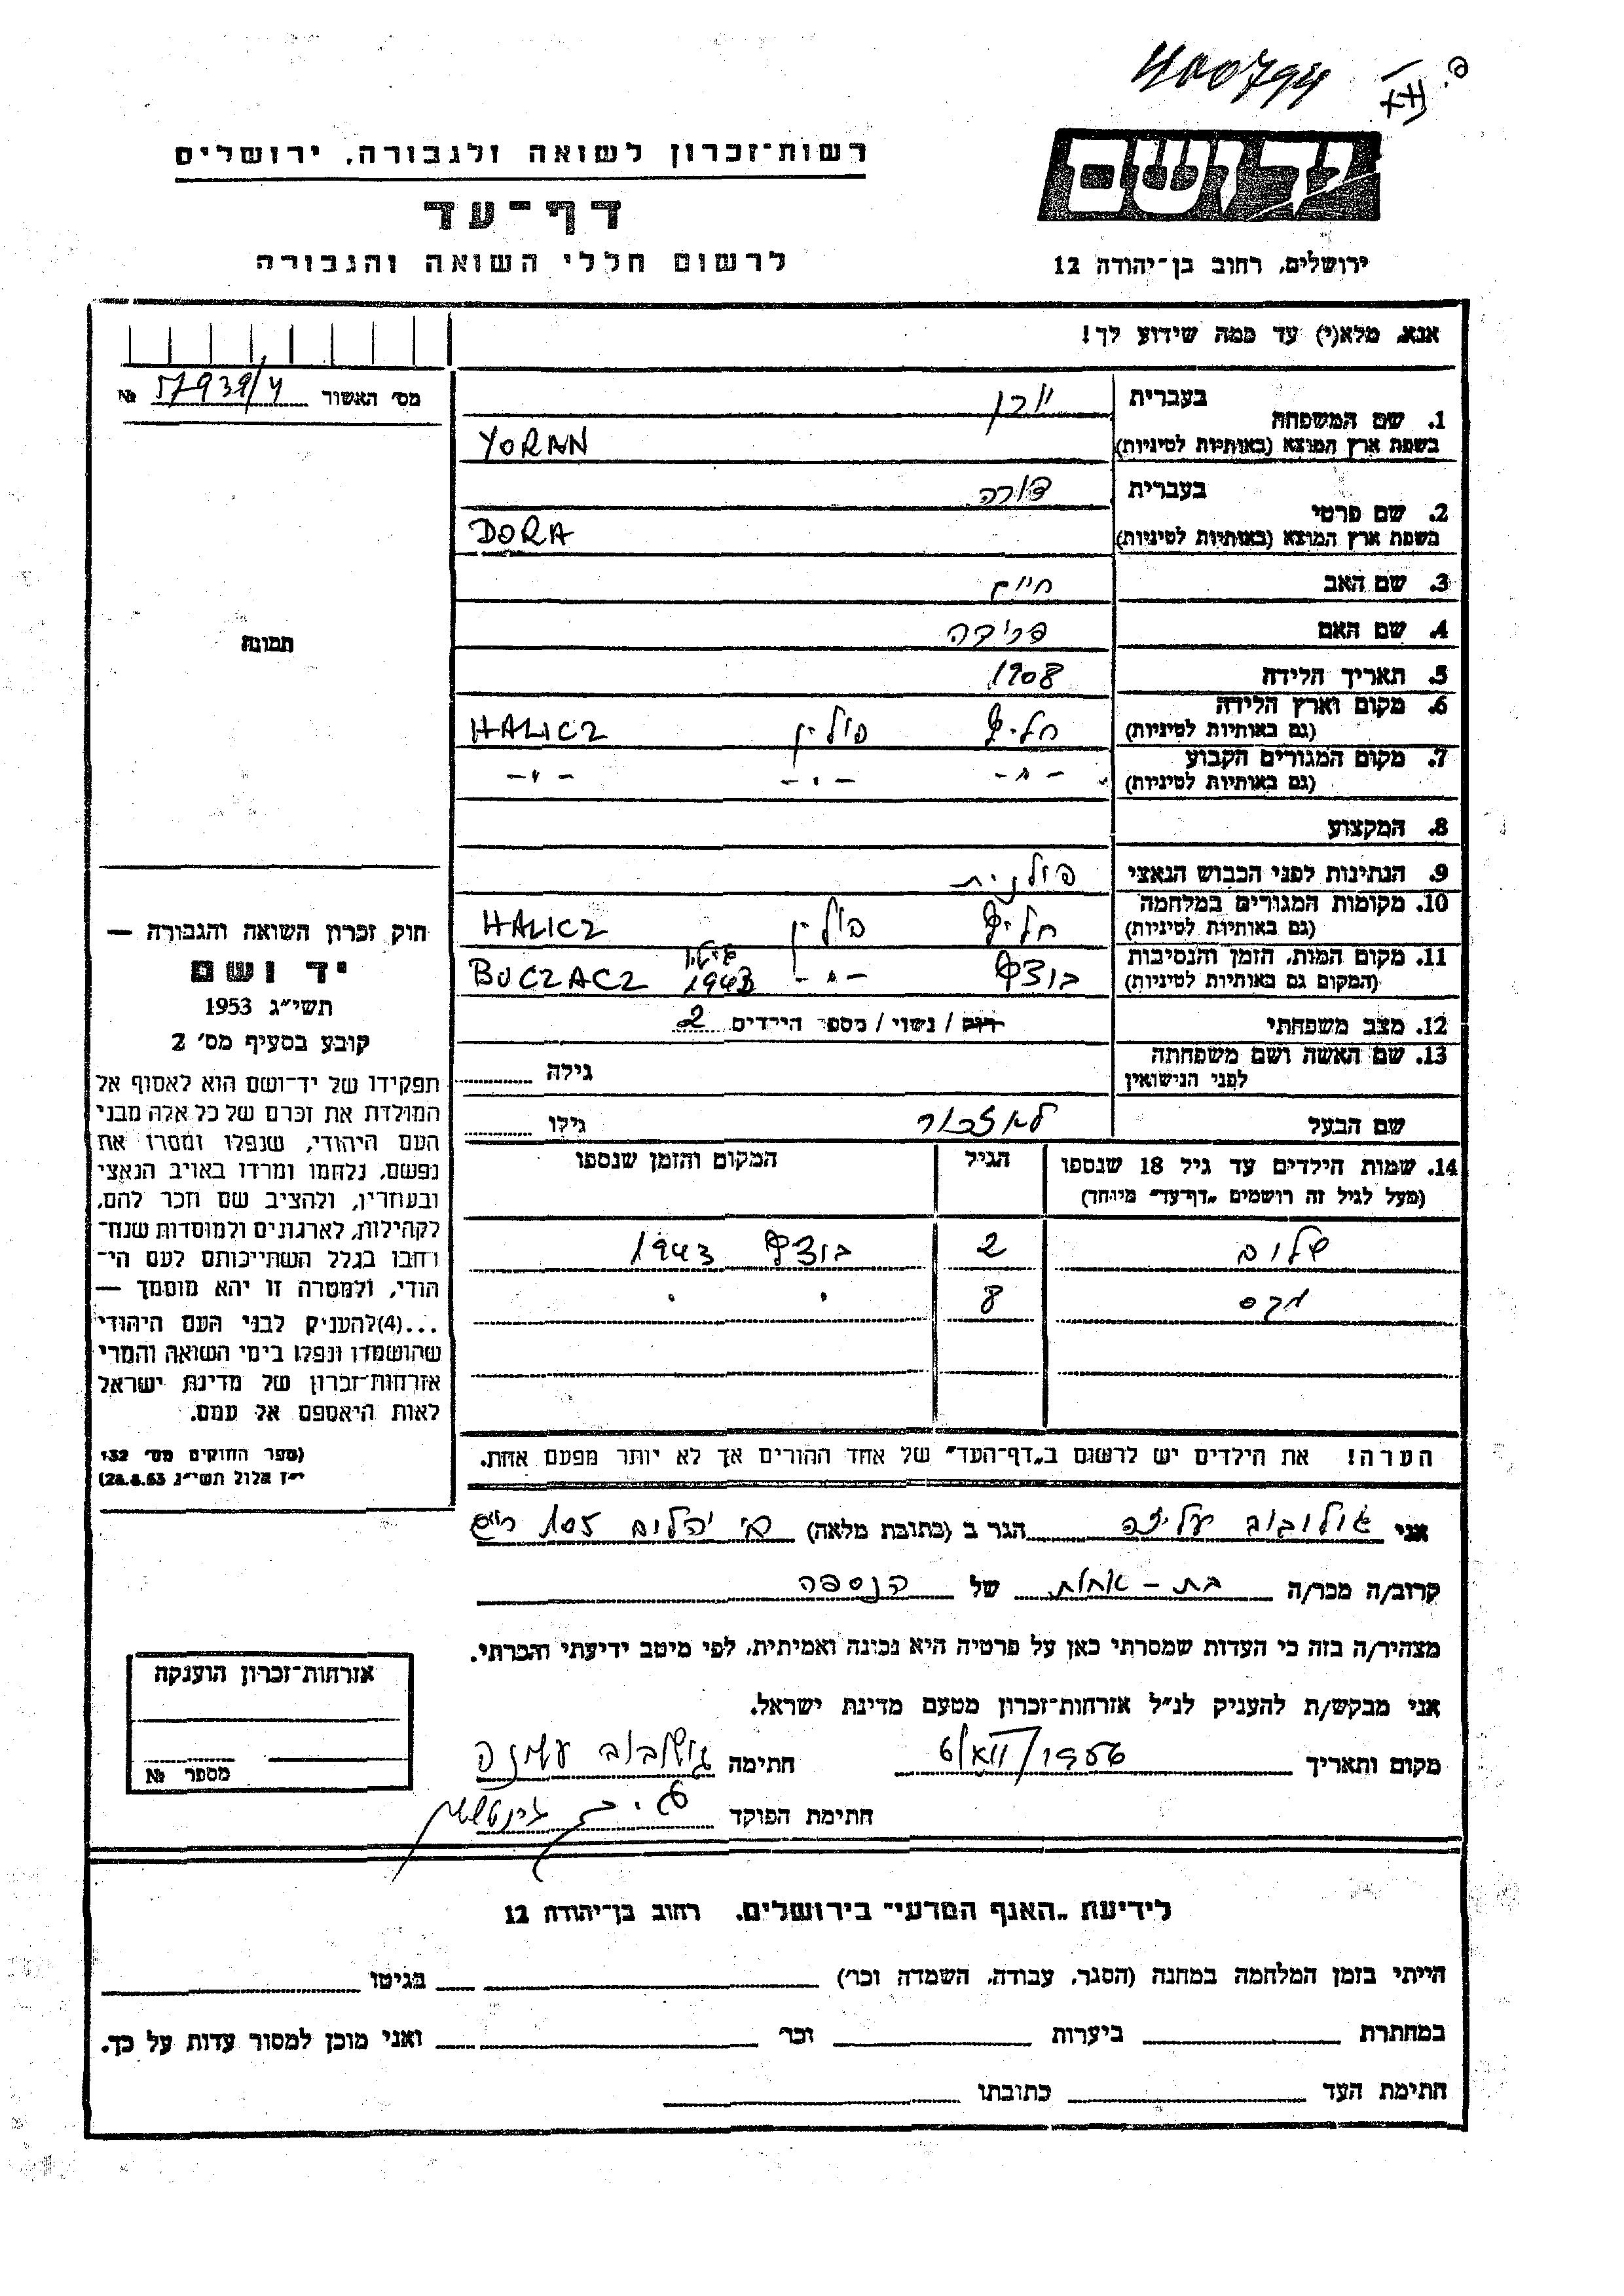 400794
ידושם
רשות־זכרון לשואה ולגבורה, ירושלים
דף־עד
לרשום חללי השואה והגבורה
ירושלים, רחוב בן־יהודה 12
אנא, מלא(י) עד כמה שידוע לך!
מס׳ האשור 57939/4 №
בעברית יורן
1. שם המשפחה
בשפת ארץ המוצא (באותיות לטיניות) YORAN
בעברית דורה
2. שם פרטי
בשפת ארץ המוצא (באותיות לטיניות) DORA
3. שם האב חיים
4. שם האם פרידה
תמונה
5. תאריך הלידה 1908
6. מקום וארץ הלידה
(גם באותיות לטיניות) חליץ פולין HALICZ
7. מקום המגורים הקבוע
(גם באותיות לטיניות) -״- -״- -״-
8. המקצוע
9. הנתינות לפני הכבוש הנאצי פולנית
10. מקומות המגורים במלחמה
(גם באותיות לטיניות) חליץ פולין HALICZ
11. מקום המות, הזמן והנסיבות
(המקום גם באותיות לטיניות) בוצץ -״- 1943 BUCZACZ
12. מצב משפחתי רוק / נשוי / מספר הילדים 2
13. שם האשה ושם משפחתה
לפני הנישואין גילה
שם הבעל גילו
14. שמות הילדים עד גיל 18 שנספו הגיל המקום והזמן שנספו
(מעל לגיל זה רושמים „דף־עד״ מיוחד)
שלום 2 בוצץ 1943
מקס 8 ״ ״
הערה! את הילדים יש לרשום ב„דף־העד״ של אחד ההורים אך לא יותר מפעם אחת.
חוק זכרון השואה והגבורה —
יד ושם
תשי״ג 1953
קובע בסעיף מס׳ 2
תפקידו של יד־ושם הוא לאסוף אל
המולדת את זכרם של כל אלה מבני
העם היהודי, שנפלו ומסרו את
נפשם, נלחמו ומרדו באויב הנאצי
ובעוזריו, ולהציב שם וזכר להם,
לקהילות, לארגונים ולמוסדות שנח־
רבו בגלל השתייכותם לעם הי־
הודי, ולמטרה זו יהא מוסמך —
...(4)להעניק לבני העם היהודי
שהושמדו ונפלו בימי השואה והמרי
אזרחות־זכרון של מדינת ישראל
לאות היאספם אל עמם.
(ספר החוקים מס׳ 132
י״ז אלול תשי״ג 28.8.53)
אני עליזה הגר ב (כתובת מלאה) יהלום 105
קרוב/ה מכר/ה בת - אחות של הנספה
מצהיר/ה בזה כי העדות שמסרתי כאן על פרטיה היא נכונה ואמיתית, לפי מיטב ידיעתי והכרתי.
אני מבקש/ת להעניק לנ״ל אזרחות־זכרון מטעם מדינת ישראל.
מקום ותאריך חתימה
חתימת הפוקד
אזרחות־זכרון הוענקה
מספר №
לידיעת „האגף המדעי״ בירושלים, רחוב בן־יהודה 12
הייתי בזמן המלחמה במחנה (הסגר, עבודה, השמדה וכו׳) בגיטו
במחתרת ביערות וכו׳ ואני מוכן למסור עדות על כך.
חתימת העד כתובתו